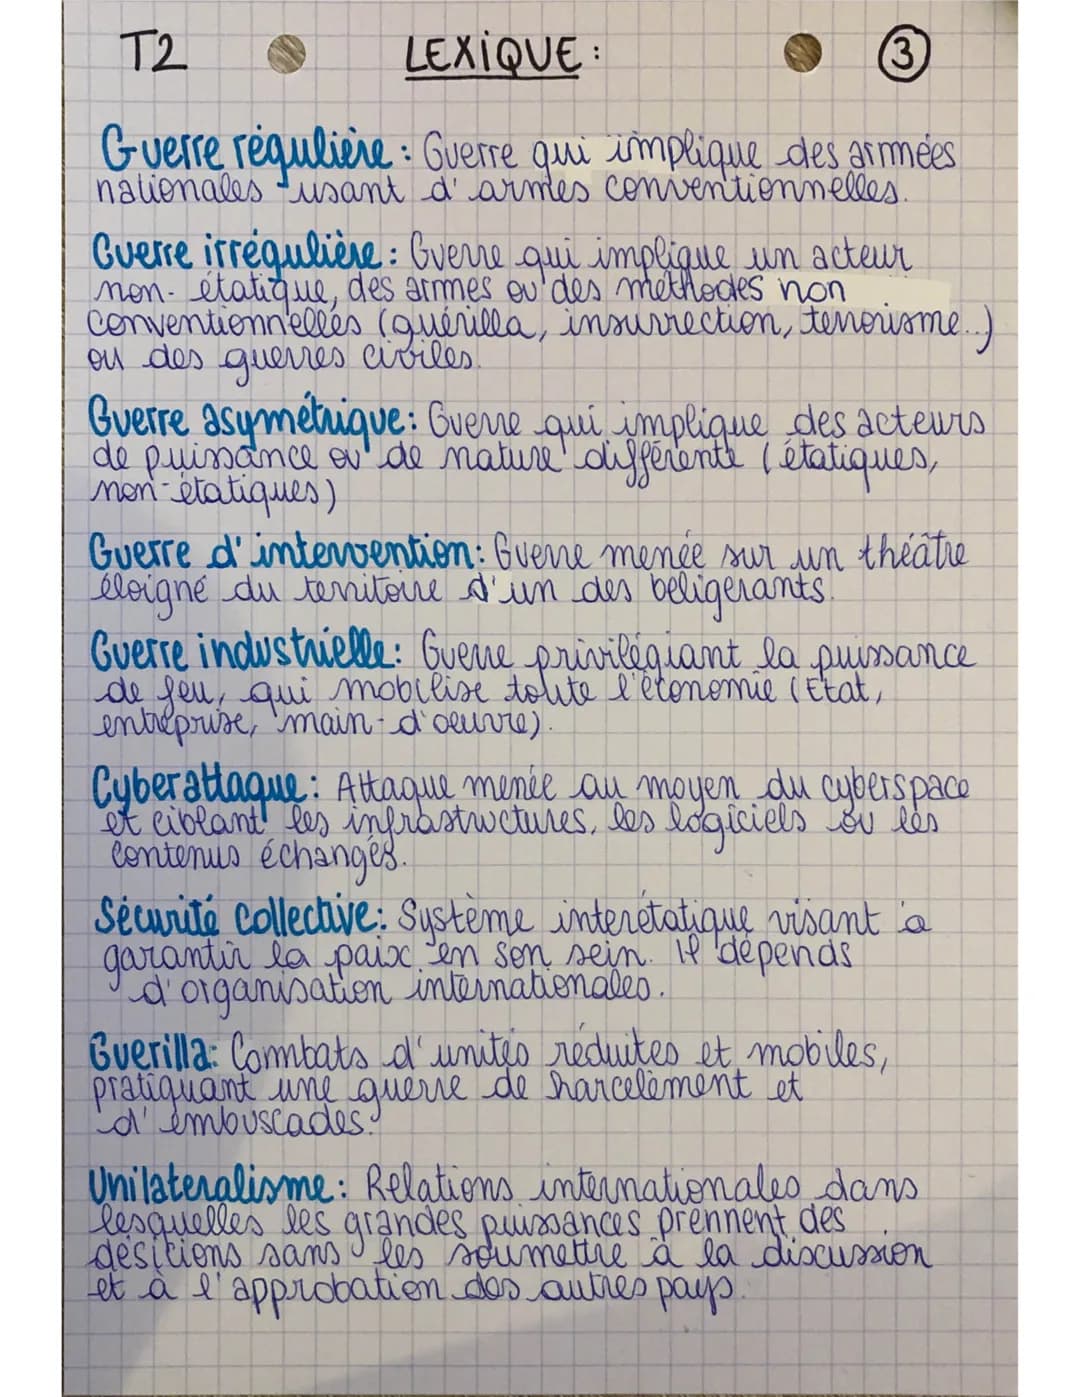 T2 LEXIQUE : 3
Guerre régulière : Guerre qui implique des armées
nationales usant d'armes conventionnelles.
Guerre irrégulière : Guerre qui implique un acteur
non-étatique, des armes ou des méthodes non
conventionnelles (guérilla, insurrection, terrorisme..)
ou des guerres civiles.
Guerre asymétrique : Guerre qui implique des acteurs
de puissance ou de nature différente (étatiques,
non-étatiques)
Guerre d'intervention : Guerre menée sur un théâtre
éloigné du territoire d'un des beligérants.
Guerre industrielle : Guerre privilégiant la puissance
de feu, qui mobilise toute l'économie (Etat,
entreprise, main-d'oeuvre).
Cyberattaque : Attaque menée au moyen du cyberspace
et ciblant les infrastructures, les logiciels ou les
contenus échangés.
Sécurité collective : Système interétatique visant à
garantir la paix en son sein. Il dépends
d'organisation internationales.
Guerilla : Combats d'unités réduites et mobiles,
pratiquant une guerre de harcelèment et
d'embuscades.
Unilateralisme : Relations internationales dans
lesquelles les grandes puissances prennent des
désitions sans les soumettre à la discussion
et à l'approbation des autres pays.